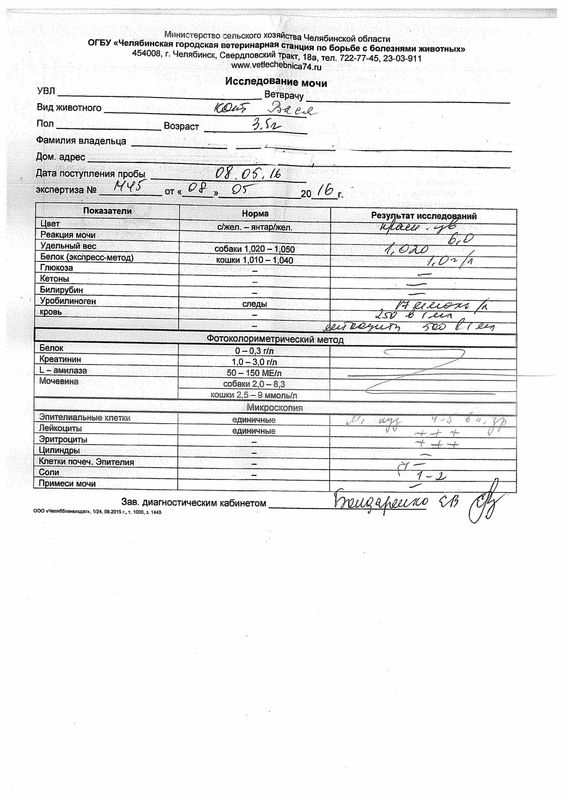 Министерство сельского хозяйства Челябинской области
ОГБУ «Челябинская городская ветеринарная станция по борьбе с болезнями животных»
454008, г. Челябинск, Свердловский тракт, 18а, тел. 722-77-45, 23-03-911
www.vetlechebnica74.ru
Исследование мочи
УВЛ Ветврачу
Вид животного кот Вася
Пол Возраст 3,5г
Фамилия владельца
Дом. адрес
Дата поступления пробы 08.05.16
экспертиза № М45 от «08» 05 2016г.
Показатели Норма Результат исследований
Цвет с/жел. – янтар/жел. красн. цв
Реакция мочи 6,0
Удельный вес собаки 1,020 – 1,050 1,020
Белок (экспресс-метод) кошки 1,010 – 1,040 1,0 г/л
Глюкоза – —
Кетоны – —
Билирубин – —
Уробилиноген следы 17 /л
кровь – 250 в 1 мкл
– лейкоциты 500 в 1 мкл
Фотоколориметрический метод
Белок 0 – 0,3 г/л
Креатинин 1,0 – 3,0 г/л
L – амилаза 50 – 150 МЕ/л
Мочевина собаки 2,0 – 8,3
кошки 2,5 – 9 ммоль/л
Микроскопия
Эпителиальные клетки единичные 4-5 в п. зр
Лейкоциты единичные +++
Эритроциты – +++
Цилиндры – —
Клетки почеч. Эпителия –
Соли – 1-2
Примеси мочи —
Зав. диагностическим кабинетом Бондаренко СВ
ООО «Челяббланкиздат», 1/24, 08.2015 г., т. 1000, з. 1440